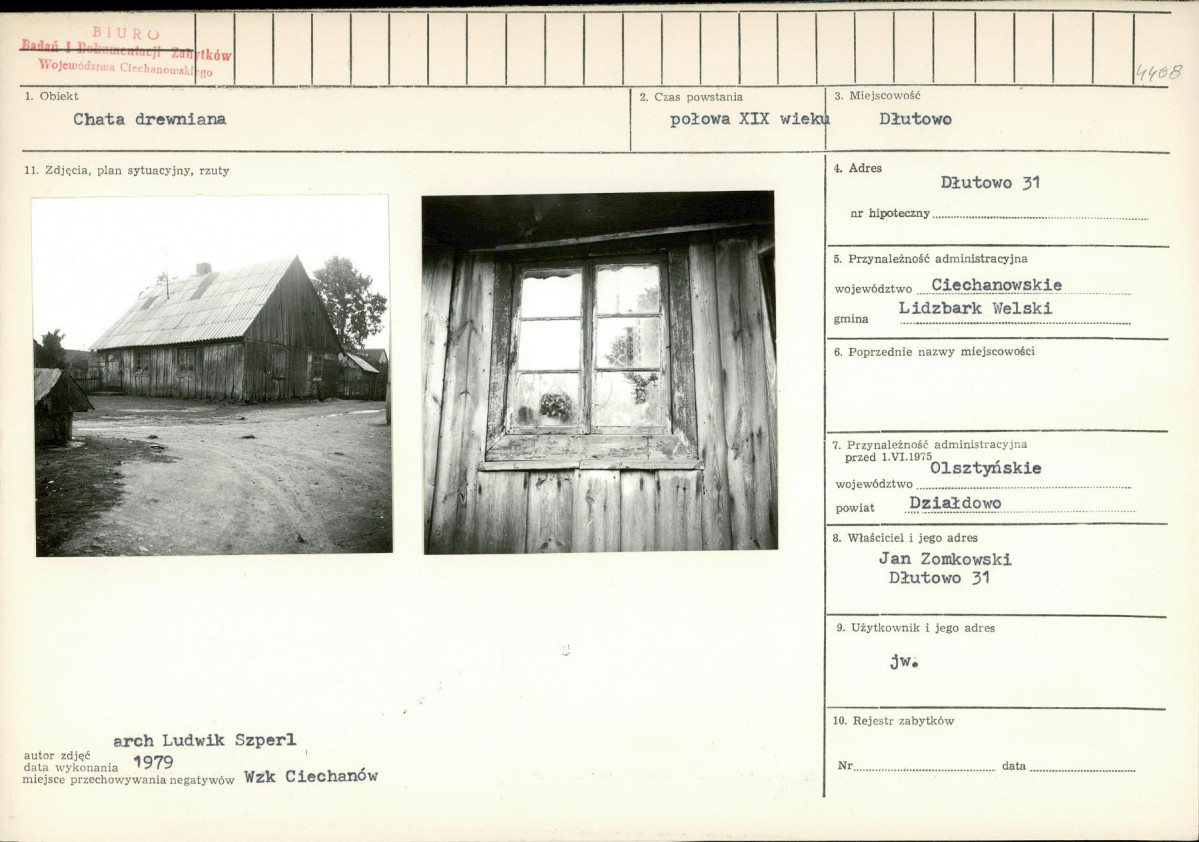 BIURO
Badań i Dokumentacji Zabytków
Województwa Ciechanowskiego
4408
1. Obiekt
Chata drewniana
2. Czas powstania
połowa XIX wieku
3. Miejscowość
Dłutowo
11. Zdjęcia, plan sytuacyjny, rzuty
4. Adres
Dłutowo 31
nr hipoteczny
5. Przynależność administracyjna
województwo Ciechanowskie
gmina Lidzbark Welski
6. Poprzednie nazwy miejscowości
7. Przynależność administracyjna
przed 1.VI.1975
województwo Olsztyńskie
powiat Działdowo
8. Właściciel i jego adres
Jan Zomkowski
Dłutowo 31
9. Użytkownik i jego adres
jw.
10. Rejestr zabytków
Nr data
autor zdjęć arch Ludwik Szperl
data wykonania 1979
miejsce przechowywania negatywów Wzk Ciechanów